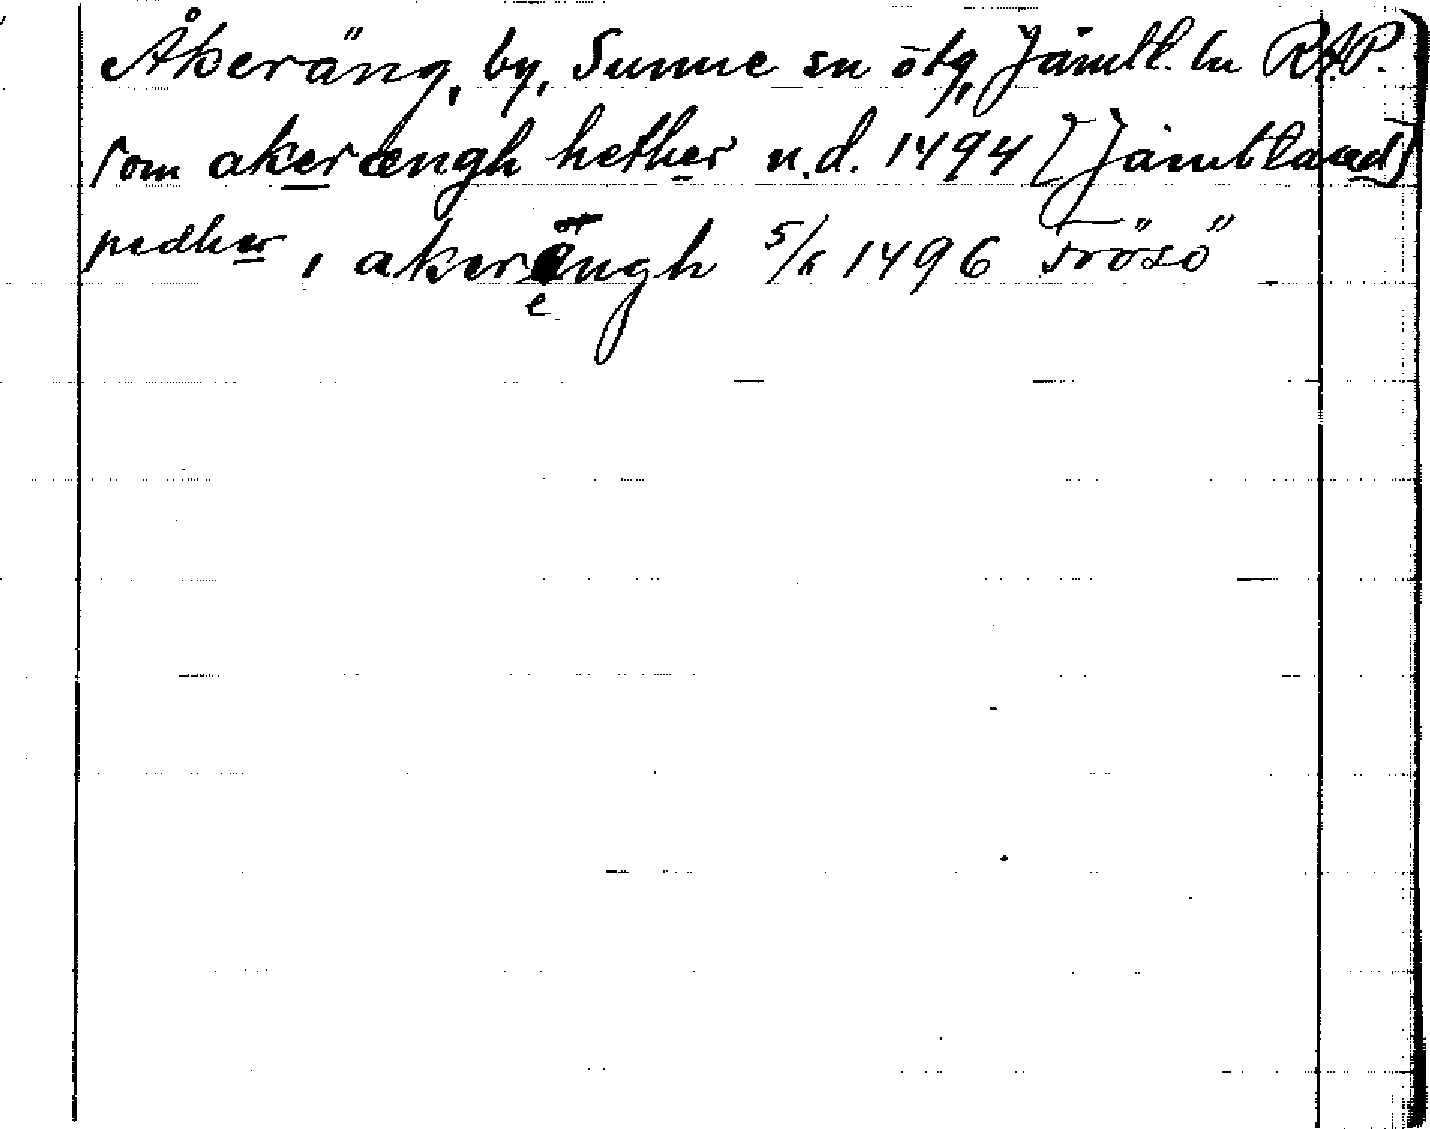 Åkeräng, by, Sunne sn ötg, Jämtl. ln RAP.
som akerængh hether u.d. 1494 [Jämtland]
pedher, i akerengh 5/6 1496 Frösö